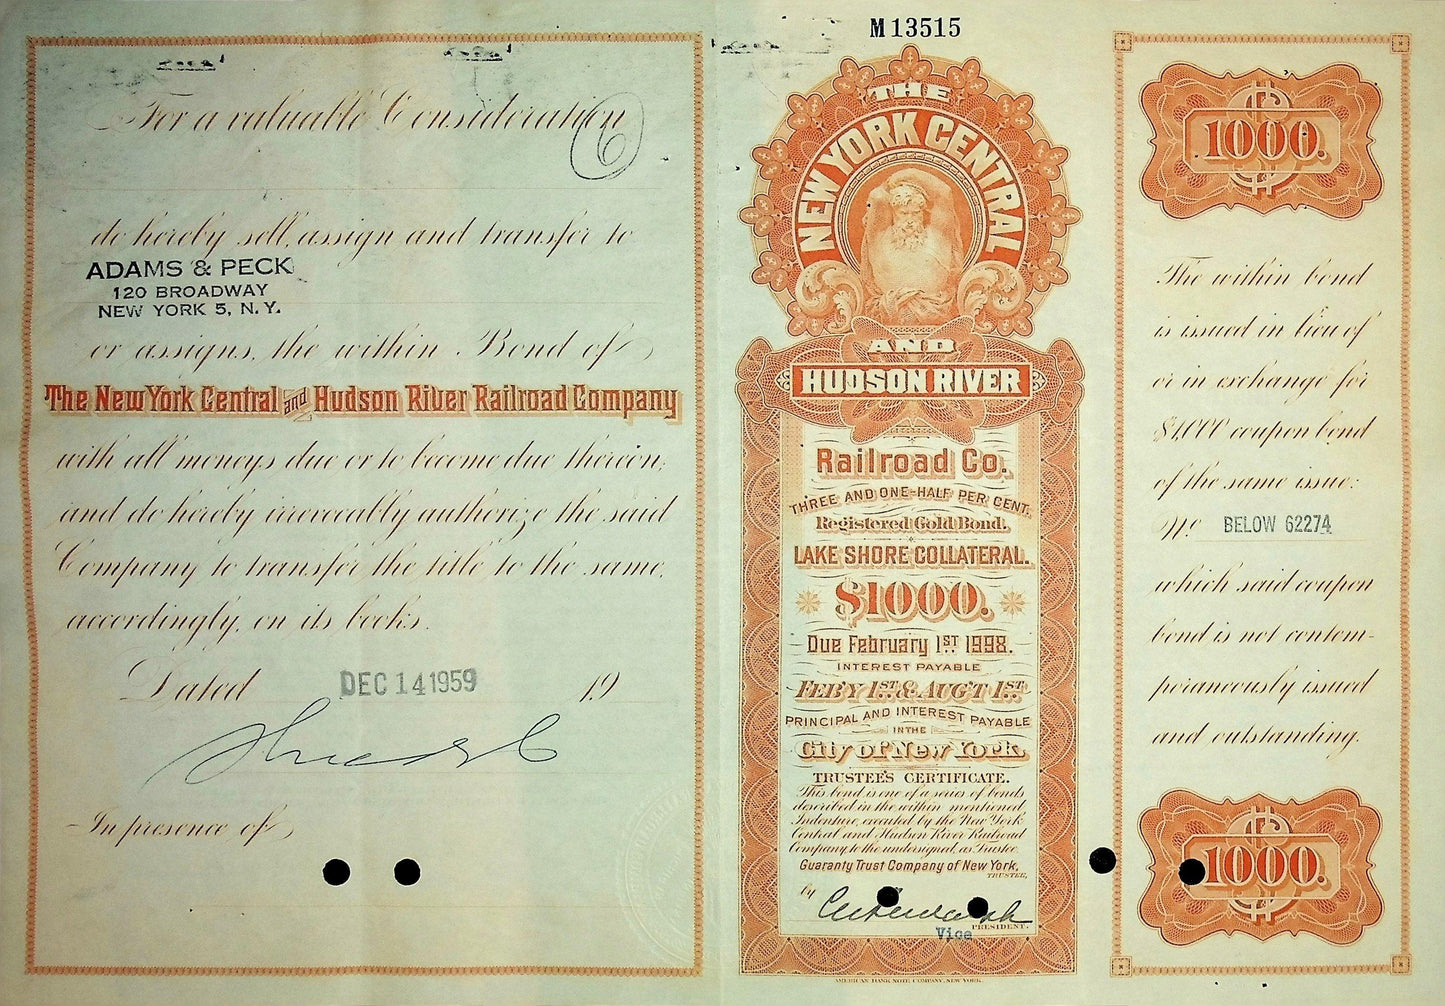 For a valuable Consideration
6
do hereby sell, assign and transfer to
ADAMS & PECK
120 BROADWAY
NEW YORK 5, N.Y.
or assigns, the within Bond of
The New York Central and Hudson River Railroad Company
with all moneys due or to become due thereon,
and do hereby irrevocably authorize the said
Company to transfer the title to the same,
accordingly, on its books.
Dated DEC 14 1959 19
In presence of
M13515
THE
NEW YORK CENTRAL
AND
HUDSON RIVER
Railroad Co.
THREE AND ONE-HALF PER CENT.
Registered Gold Bond.
LAKE SHORE COLLATERAL.
$1000.
Due February 1ST 1998.
INTEREST PAYABLE
FEB'Y 1ST & AUG'T 1ST
PRINCIPAL AND INTEREST PAYABLE
IN THE
City of New York.
TRUSTEE'S CERTIFICATE.
This bond is one of a series of bonds
described in the within mentioned
Indenture, executed by the New York
Central and Hudson River Railroad
Company, to the undersigned, as Trustee.
Guaranty Trust Company of New York,
TRUSTEE,
by
Vice PRESIDENT.
AMERICAN BANK NOTE COMPANY, NEW YORK.
1000.
The within bond
is issued in lieu of
or in exchange for
$1,000 coupon bond
of the same issue:
No. BELOW 62274
which said coupon
bond is not contem-
poraneously issued
and outstanding.
1000.